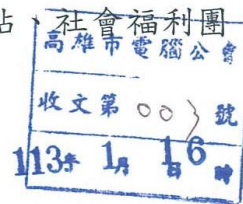 占、社會福利團
高雄市電腦公會
收文第003號
113年1月16日時